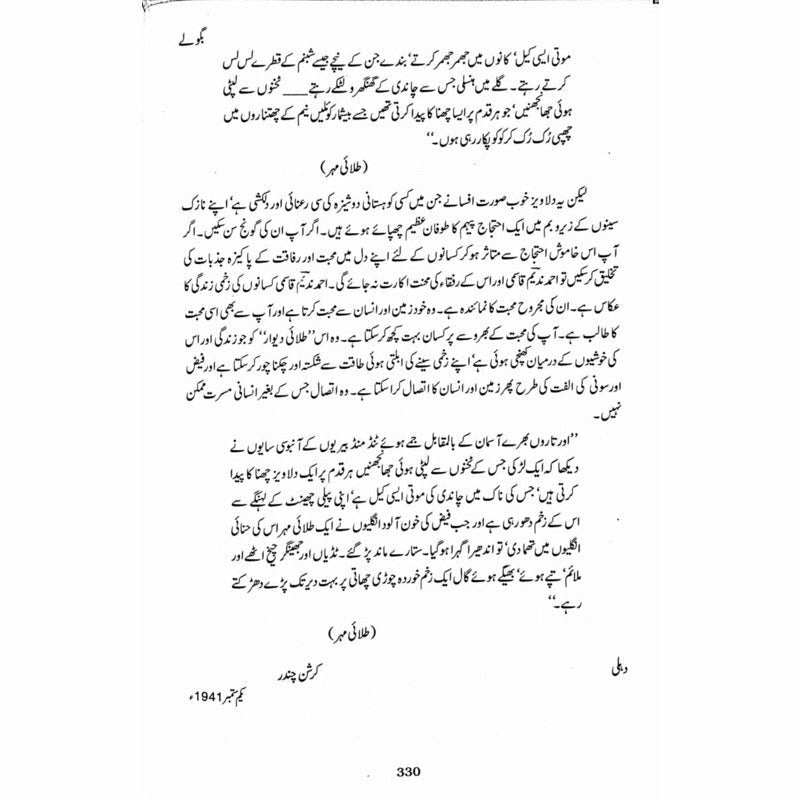 بگولے
موتی ایسی کیل‘ کانوں میں جھمر جھمر کرتے‘ بندے جن کے نیچے جیسے شبنم کے قطرے لس لس
کرتے رہتے۔ گلے میں ہنسلی جس سے چاندی کے گھنگھرو لٹکے رہتے ____ ٹخنوں سے لپٹی
ہوئی جھانجھنیں‘ جو ہر قدم پر ایسا چھنا کا پیدا کرتی تھیں جسے بیشمار کوئلیں نیم کے چھتناروں میں
چھپی رُک رُک کر کوکو پکار رہی ہوں۔‘‘
(طلائی مہر)
لیکن یہ دلاویز خوب صورت افسانے جن میں کسی کوہستانی دوشیزہ کی سی رعنائی اور دلکشی ہے‘ اپنے نازک
سینوں کے زیر و بم میں ایک احتجاج پیہم کا طوفان عظیم چھپائے ہوئے ہیں۔ اگر آپ ان کی گونج سن سکیں۔ اگر
آپ اس خاموش احتجاج سے متاثر ہو کر کسانوں کے لئے اپنے دل میں محبت اور رفاقت کے پاکیزہ جذبات کی
تخلیق کر سکیں تو احمد ندیم قاسمی اور اس کے رفقاء کی محنت اکارت نہ جائے گی۔ احمد ندیم قاسمی کسانوں کی زخمی زندگی کا
عکاس ہے۔ ان کی مجروح محبت کا نمائندہ ہے۔ وہ خود زمین اور انسان سے محبت کرتا ہے اور آپ سے بھی اسی محبت
کا طالب ہے۔ آپ کی محبت کے بھروسے پر کسان بہت کچھ کر سکتا ہے۔ وہ اس ’’طلائی دیوار‘‘ کو جو زندگی اور اس
کی خوشیوں کے درمیان کھنچی ہوئی ہے‘ اپنے زخمی سینے کی ابلتی ہوئی طاقت سے شکستہ اور چکنا چور کر سکتا ہے اور فیض
اور سونی کی الفت کی طرح پھر زمین اور انسان کا اتصال کرا سکتا ہے۔ وہ اتصال جس کے بغیر انسانی مسرت ممکن
نہیں۔
’’اور تاروں بھرے آسمان کے بالمقابل جمے ہوئے ٹنڈ منڈ بیریوں کے آبنوسی سایوں نے
دیکھا کہ ایک لڑکی جس کے ٹخنوں سے لپٹی ہوئی جھانجھنیں ہر قدم پر ایک دلاویز چھنا کا پیدا
کرتی ہیں‘ جس کی ناک میں چاندی کی موتی ایسی کیل ہے‘ اپنی پیلی چھینٹ کے لہنگے سے
اس کے زخم دھو رہی ہے اور جب فیض کی خون آلود انگلیوں نے ایک طلائی مہر اس کی حنائی
انگلیوں میں تھما دی‘ تو اندھیرا گہرا ہو گیا۔ ستارے ماند پڑ گئے۔ ٹڈیاں اور جھینگر چیخ اٹھے اور
ملائم‘ تپے ہوئے‘ بھیگے ہوئے گال ایک زخم خوردہ چوڑی چھاتی پر بہت دیر تک پڑے دھڑکتے
رہے۔‘‘
(طلائی مہر)
دہلی کرشن چندر
یکم ستمبر 1941ء
330